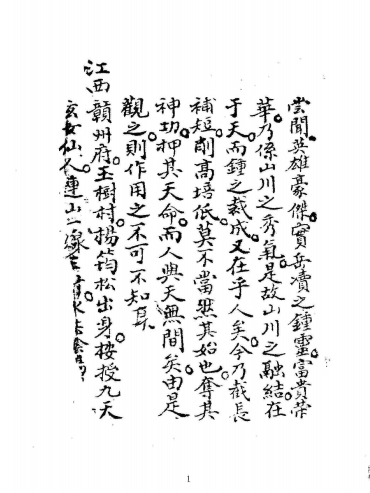 嘗聞英雄豪傑實岳瀆之鍾靈富貴榮
華乃係山川之秀氣是故山川之融結在
于天而鍾之裁成又在乎人矣今乃截長
補短削高培低莫不當然其始也奪其
神功押其天命而人與天無間矣由是
觀之則作用之不可不知耳
江西贛州府玉樹村楊筠松出身接授九天
玄女仙人連山二
1